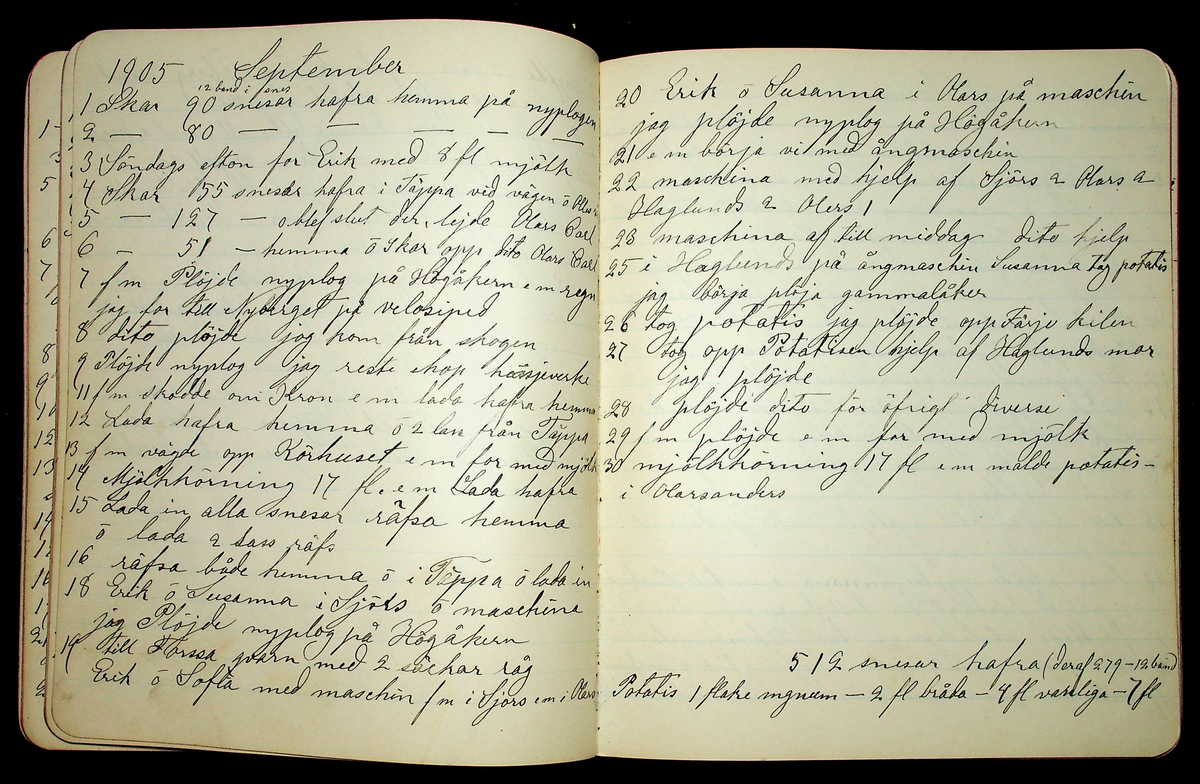 1905 September
12 band i snes
1 Skar 90 snesar hafra hemma på nyplogen
2 — 80 — — — — —
3 Söndags efton for Erik med 8 fl mjölk
4 Skar 155 snesar hafra i Täppa ved vägen ö
5 — 127 — slut der, lejde Olars Carl
6 — 51 — hemma ö Skar opp dito Olars Carl
7 f m Plöjde nyplog på Högåkern e m regn
jag for till Nyberget på velosiped
8 dito plöjde jag kom från skogen
9 Plöjde nyplog jag reste ehop hässjeverke
11 f m skodde om Kron e m lada hafra hemma
12 Lada hafra hemma ö 2 lass från Täppa
13 f m vägde opp Körhuset e m for med mjölk
14 Mjölkkörning 17 fl. e m Lada hafra
15 Lada in alla snesar räfsa hemma
ö lada 2 lass räfs
16 räfsa både hemma ö i Täppa ö lada in
18 Erik ö Susanna i Sjörs ö maschina
jag Plöjde nyplog på Högåkern
19 till Forssa qvarn med 2 säckar råg
Erik ö Sofia med maschin f m i Sjörs e m i Olars
20 Erik ö Susanna i Olars på maschin
jag plöjde nyplog på Högåkern
21 e m börja vi med ångmaschin
22 maschina med hjelp af Sjörs 2 Olars 2
Haglunds 2 Olers 1
23 maschina af till middag dito hjelp
25 i Haglunds på ångmaschin Susanna tog potatis
jag börja plöja gammalåker
26 tog potatis jag plöjde opp Färje kilen
27 tog opp Potatisen hjelp af Haglunds mor
jag plöjde
28 plöjde dito för öfrigt diverse
29 f m plöjde e m for med mjölk
30 mjölkkörning 17 fl e m malde potatis -
i Olarsanders
512 snesar hafra (deraf 279 - 12 band
Potatis 1 flake mgnum - 2 fl bråda - 4 fl vanliga - 7 fl